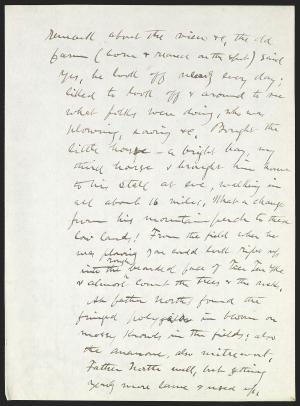 remark about the view &c, the old
farmer (born & reared on the spot) said
Yes, he took off nearly every day;
liked to look off & around to see
what folks were doing, who was
plowing, sowing &c. Bought the
little horse — a bright bay, my
third horse & brought him home
to his stall at eve, walking in
all about 16 miles. What a change
from his mountain perch to these
low lands! From the field when he
was plowing you could look right up
into the rough bearded face of
& almost count the trees & the rocks.
At father North's found the
fringed polygala in bloom on
mossy knolls in the fields; also
the anemone, also mitrewort.
Father North well, but getting
very more lame & used up.